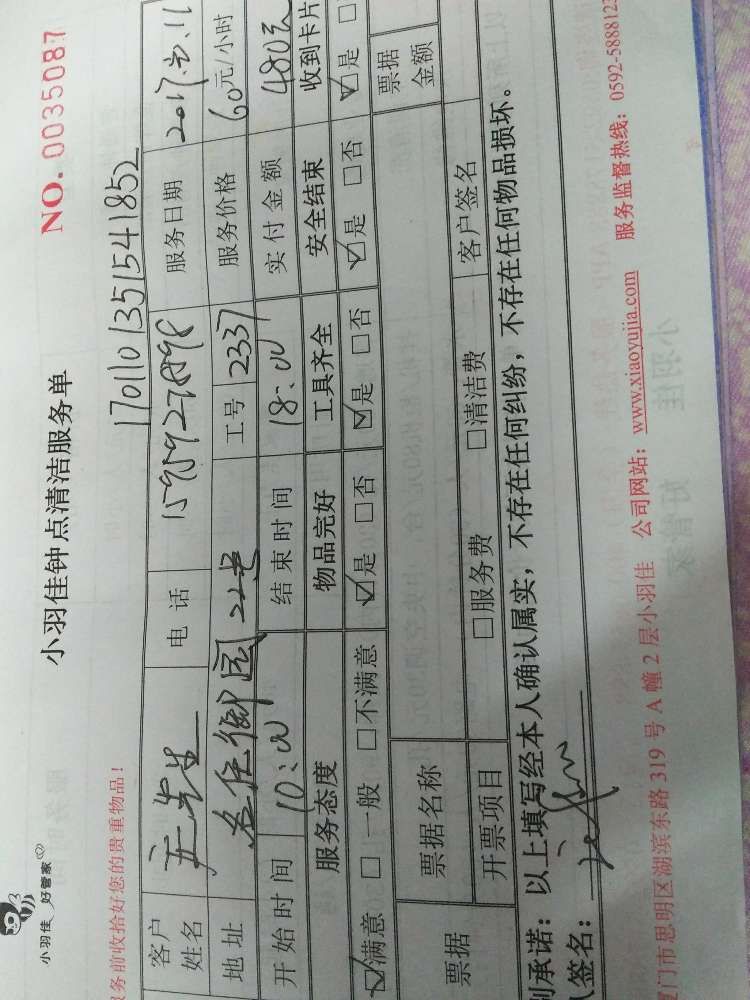 小羽佳 好管家
小羽佳钟点清洁服务单
NO. 0035087
务前收拾好您的贵重物品！
170110 1351541852
客户姓名 电话 服务日期
地址 工号 2337 服务价格 60元/小时
开始时间 10:00 结束时间 18:00 实付金额 480元
服务态度 物品完好 工具齐全 安全结束 收到卡片
☑满意 □一般 □不满意 ☑是 □否 ☑是 □否 ☑是 □否 ☑是 □
票据 票据名称 票据金额
开票项目 □服务费 □清洁费 客户签名
承诺：以上填写经本人确认属实，不存在任何纠纷，不存在任何物品损坏。
签名：
门市思明区湖滨东路 319 号 A 幢 2 层小羽佳 公司网站：www.xiaoyujia.com 服务监督热线：0592-5888123